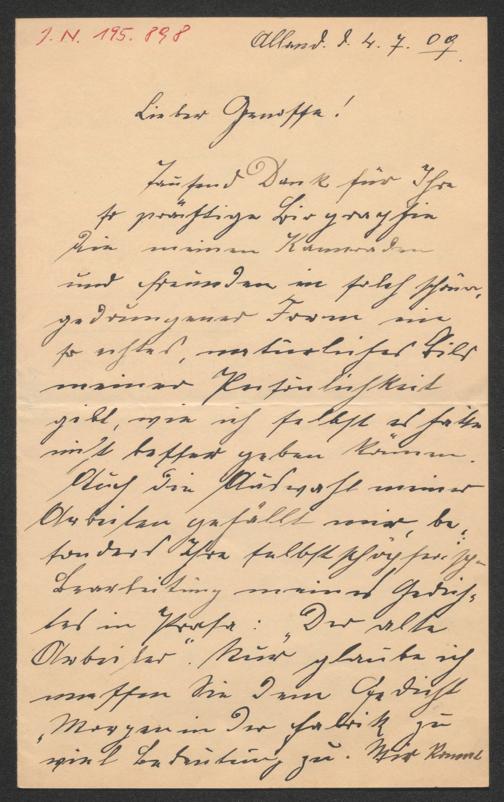 J. N. 195.898
Alland. d. 4. 7. 09.
Lieber Genosse!
Tausend Dank für Ihre
so prächtige Biographie
die meinen Kameraden
und Freunden in solch schöner,
gedrungener Form ein
so echtes, natürliches Bild
meiner Persönlichkeit
gibt, wie ich selbst es hätte
nicht besser geben können.
Auch die Auswahl meiner
Arbeiten gefällt mir, be-
sonders Ihre selbstschöpferische
Bearbeitung meines Gedich-
tes in Prosa: "Der alte
Arbeiter". Nur glaube ich
messen Sie dem Gedicht
"Morgen in der Fabrik" zu
viel Bedeutung zu. Mir kommt